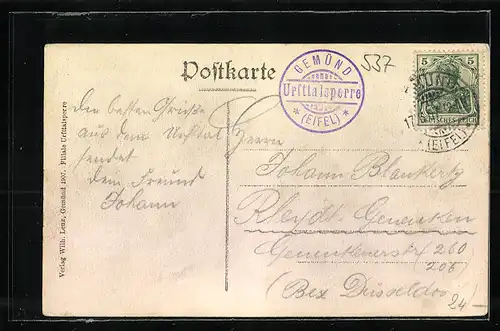 Postkarte
GEMÜND
Urfttalsperre
* (EIFEL) *
537
5 5
DEUTSCHES REICH
GEMÜND
17
* (EIFEL) *
Die besten Grüße
aus dem Urfttal
sendet
Dein Freund
Johann
Herrn
Johann Blankertz
Rheydt-Geneicken
Geneickenerstr 260
206
(Bez Düsseldorf)
24
Verlag Wilh. Lenz, Gemünd 1907. Filiale Urfttalsperre